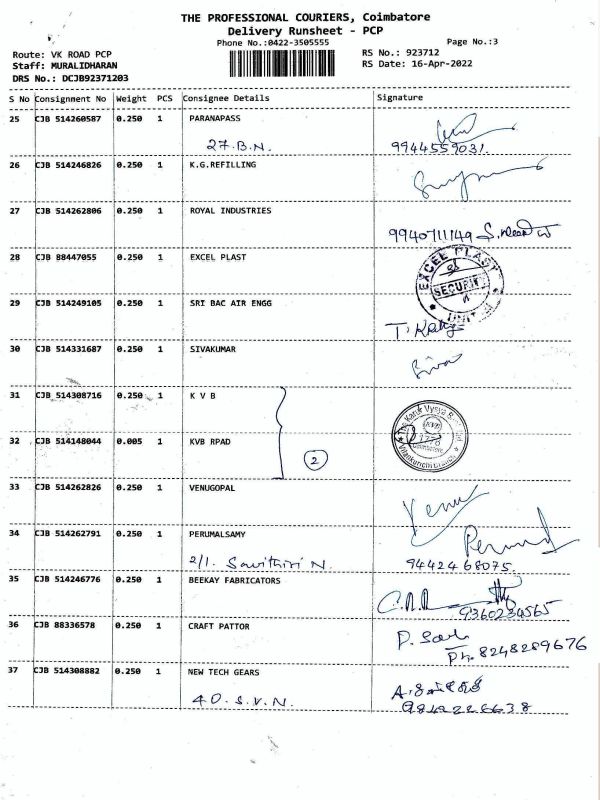 THE PROFESSIONAL COURIERS, Coimbatore
Delivery Runsheet - PCP
Phone No.:0422-3505555
Page No.:3
Route: VK ROAD PCP
Staff: MURALIDHARAN
DRS No.: DCJB92371203
RS No.: 923712
RS Date: 16-Apr-2022
S No Consignment No Weight PCS Consignee Details Signature
25 CJB 514260587 0.250 1 PARANAPASS
27.B.N. 9944559031.
26 CJB 514246826 0.250 1 K.G.REFILLING
27 CJB 514262806 0.250 1 ROYAL INDUSTRIES
9940711149
28 CJB 88447055 0.250 1 EXCEL PLAST
EXCEL PLAST
SECURITY
29 CJB 514249105 0.250 1 SRI BAC AIR ENGG
30 CJB 514331687 0.250 1 SIVAKUMAR
Siva
31 CJB 514308716 0.250 1 K V B
32 CJB 514148044 0.005 1 KVB RPAD
2
The Karur Vysya Bank Ltd
33 CJB 514262826 0.250 1 VENUGOPAL
Venu
34 CJB 514262791 0.250 1 PERUMALSAMY
2/1. Savithiri N. 9442468075.
35 CJB 514246776 0.250 1 BEEKAY FABRICATORS
9360234565
36 CJB 88336578 0.250 1 CRAFT PATTOR
Ph. 8248289676
37 CJB 514308882 0.250 1 NEW TECH GEARS
40.S.V.N.